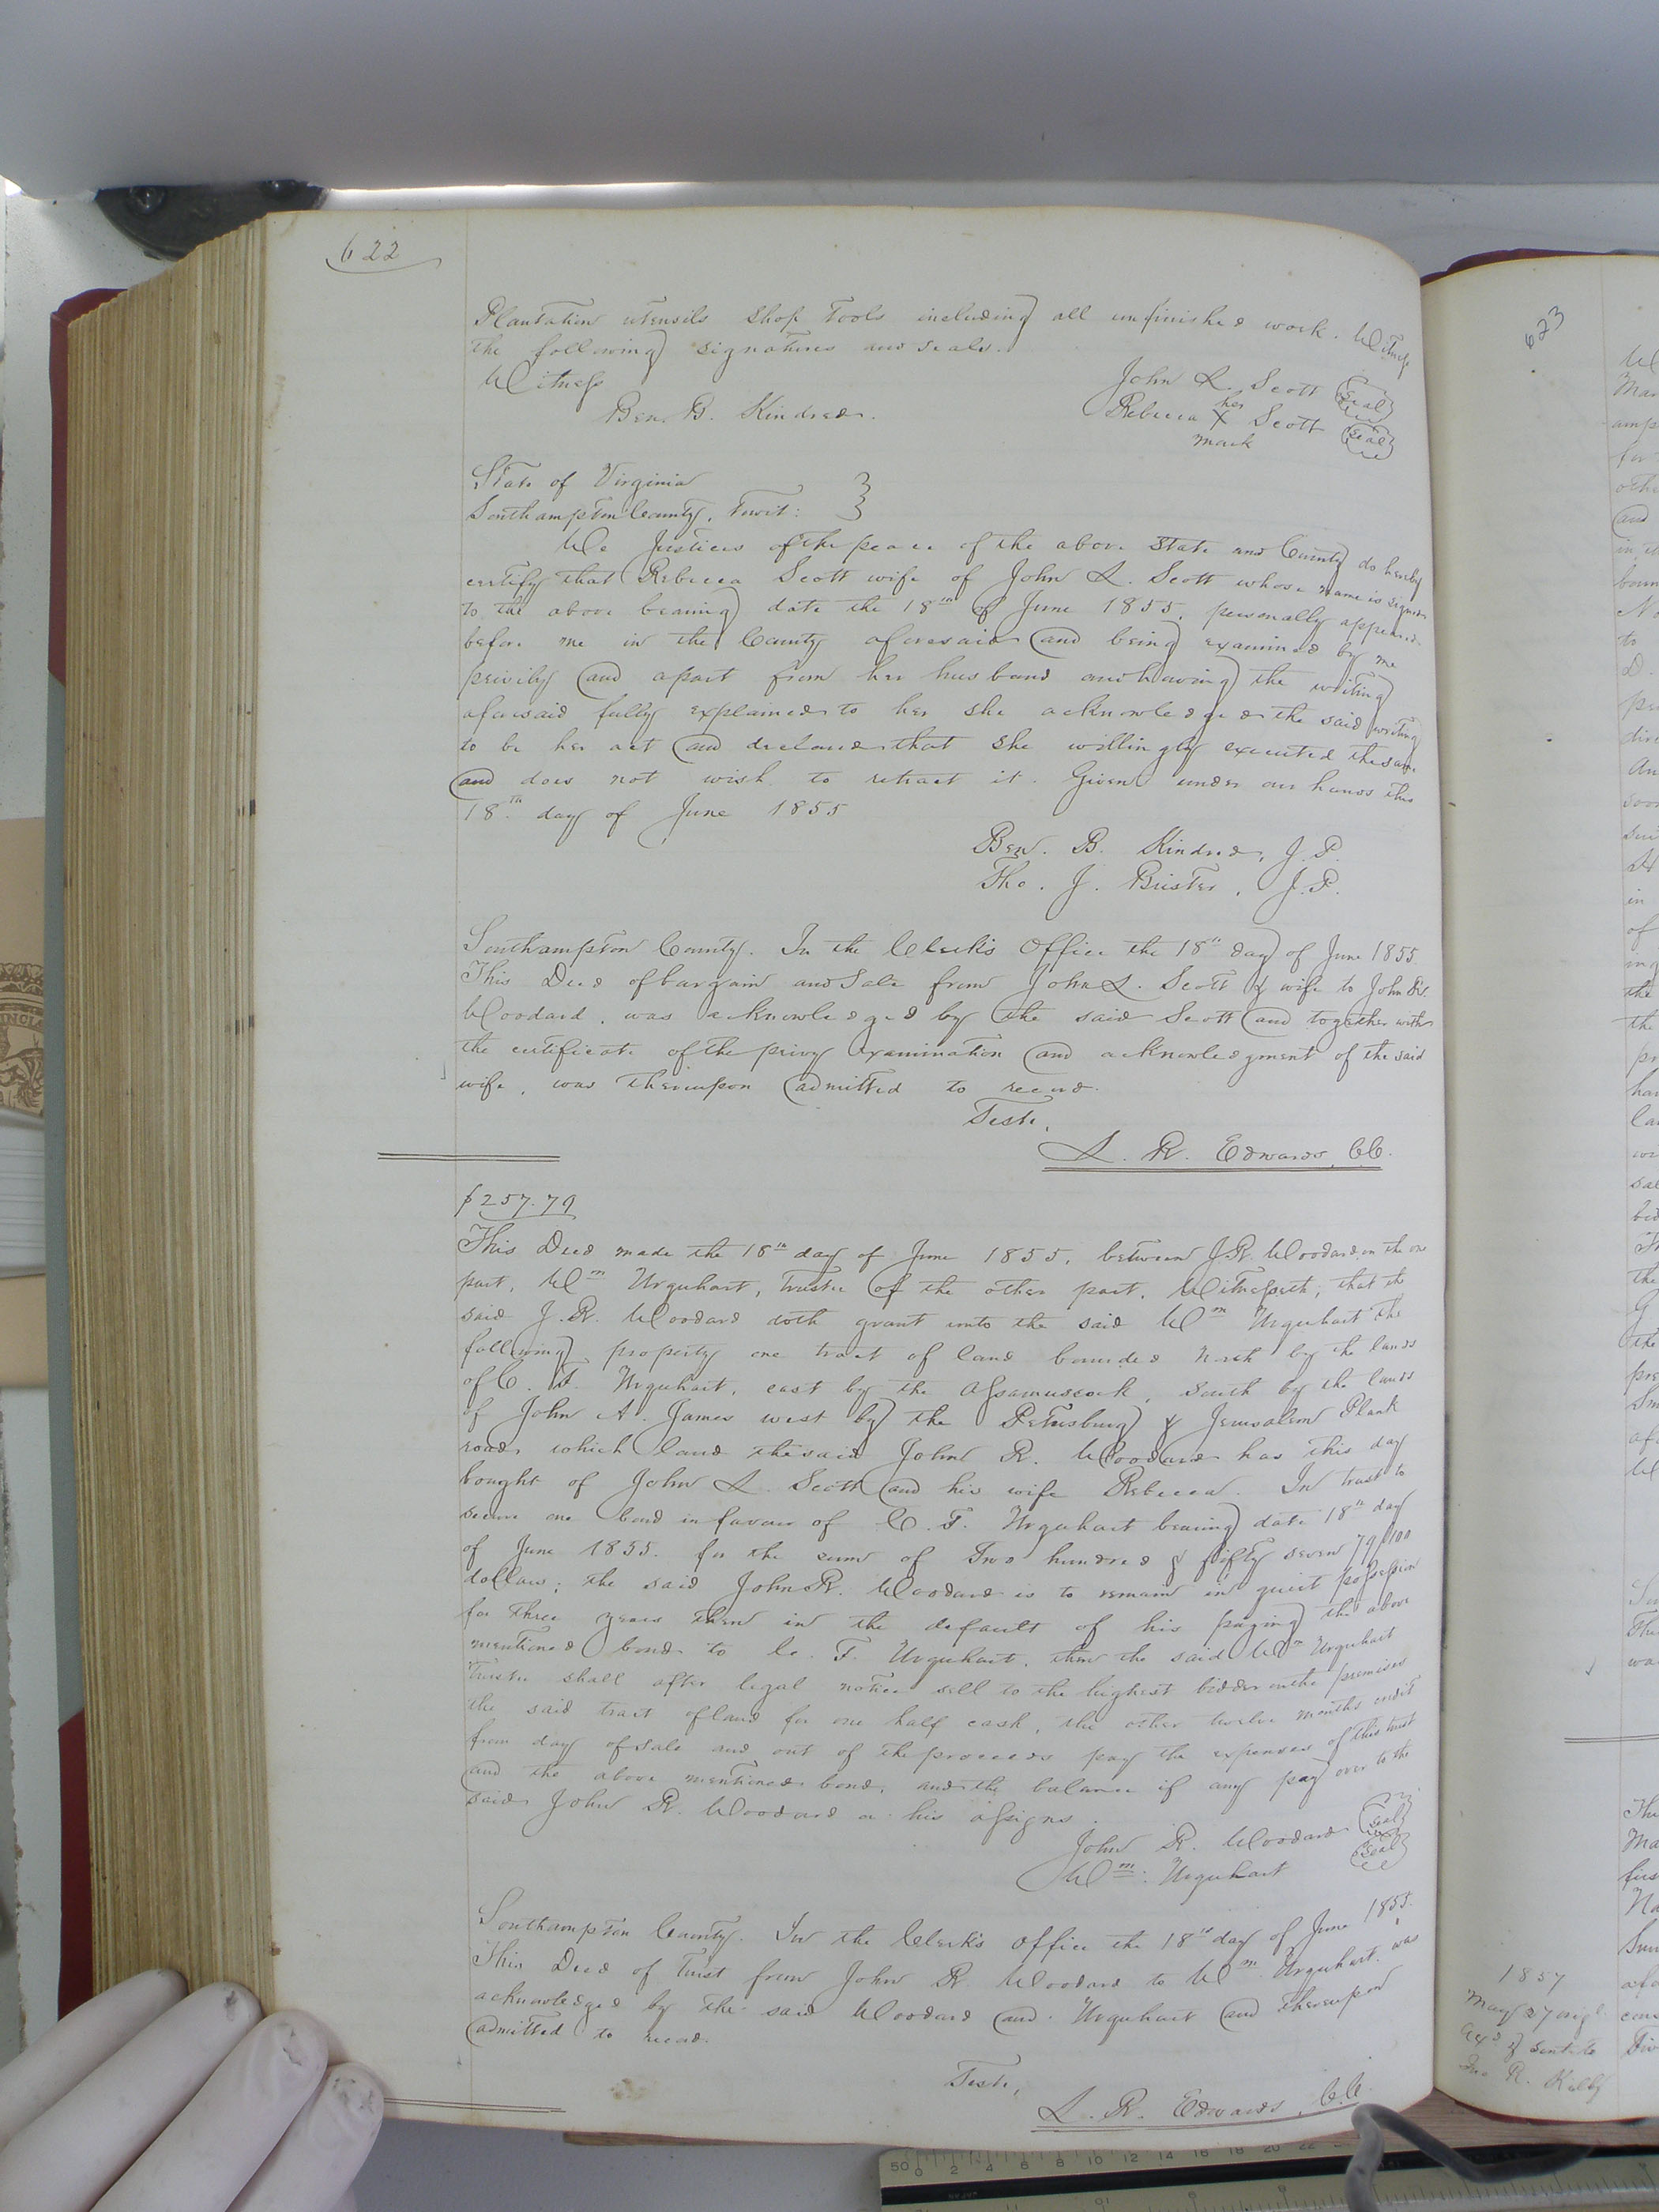 622
Plantation utensils Shop Tools including all unfinished work. Witness
the following signatures and seals.
Witness
John L. Scott (Seal)
Ben. B. Kindred.
her
Rebecca X Scott (Seal)
mark
State of Virginia
Southampton County, Towit:
We Justices of the peace of the above State and County do hereby
certify that Rebecca Scott wife of John L. Scott whose name is signed
to the above bearing date the 18th of June 1855, personally appeared
before me in the County aforesaid and being examined by me
privily and apart from her husband and having the writing
aforesaid fully explained to her she acknowledged the said writing
to be her act and declared that she willingly executed the same
and does not wish to retract it. Given under our hands this
18th day of June 1855
Ben. B. Kindred, J. P.
Tho. J. J. P.
Southampton County. In the Clerk's Office the 18th day of June 1855
This Deed of bargain and Sale from John L. Scott & wife to John R.
Woodard, was acknowledged by the said Scott and together with
the certificate of the privy examination and acknowledgment of the said
wife, was thereupon admitted to record.
Teste,
L. R. Edwards, CC.
$257.79
This Deed made the 18th day of June 1855, between J. R. Woodard on the one
part, Wm Urquhart, Trustee of the other part, Witnesseth, that the
said J. R. Woodard doth grant unto the said Wm Urquhart the
following property one tract of land bounded North by the lands
of C. F. Urquhart, east by the Assamuscock, South by the lands
of John A. James west by the Petersburg & Jerusalem Plank
road, which land the said John R. Woodard has this day
bought of John L. Scott and his wife Rebecca. In trust to
secure one bond in favour of C. F. Urquhart bearing date 18th day
of June 1855. for the sum of Two hundred & fifty seven 79/100
dollars; the said John R. Woodard is to remain in quiet possession
for three years then in the default of his paying the above
mentioned bond to C. F. Urquhart, then the said Wm Urquhart
Trustee shall after legal notice sell to the highest bidder on the premises
the said tract of land for one half cash, the other twelve months credit
from day of sale and out of the proceeds pay the expenses of this trust
and the above mentioned bond, and the balance if any pay over to the
said John R. Woodard or his assigns.
John R. Woodard (Seal)
Wm. Urquhart (Seal)
Southampton County. In the Clerk's Office the 18th day of June 1855.
This Deed of Trust from John R. Woodard to Wm Urquhart. was
acknowledged by the said Woodard and Urquhart and thereupon
admitted to record.
Teste,
L. R. Edwards, CC.
623
1857
May 27
Jno R. Kelly